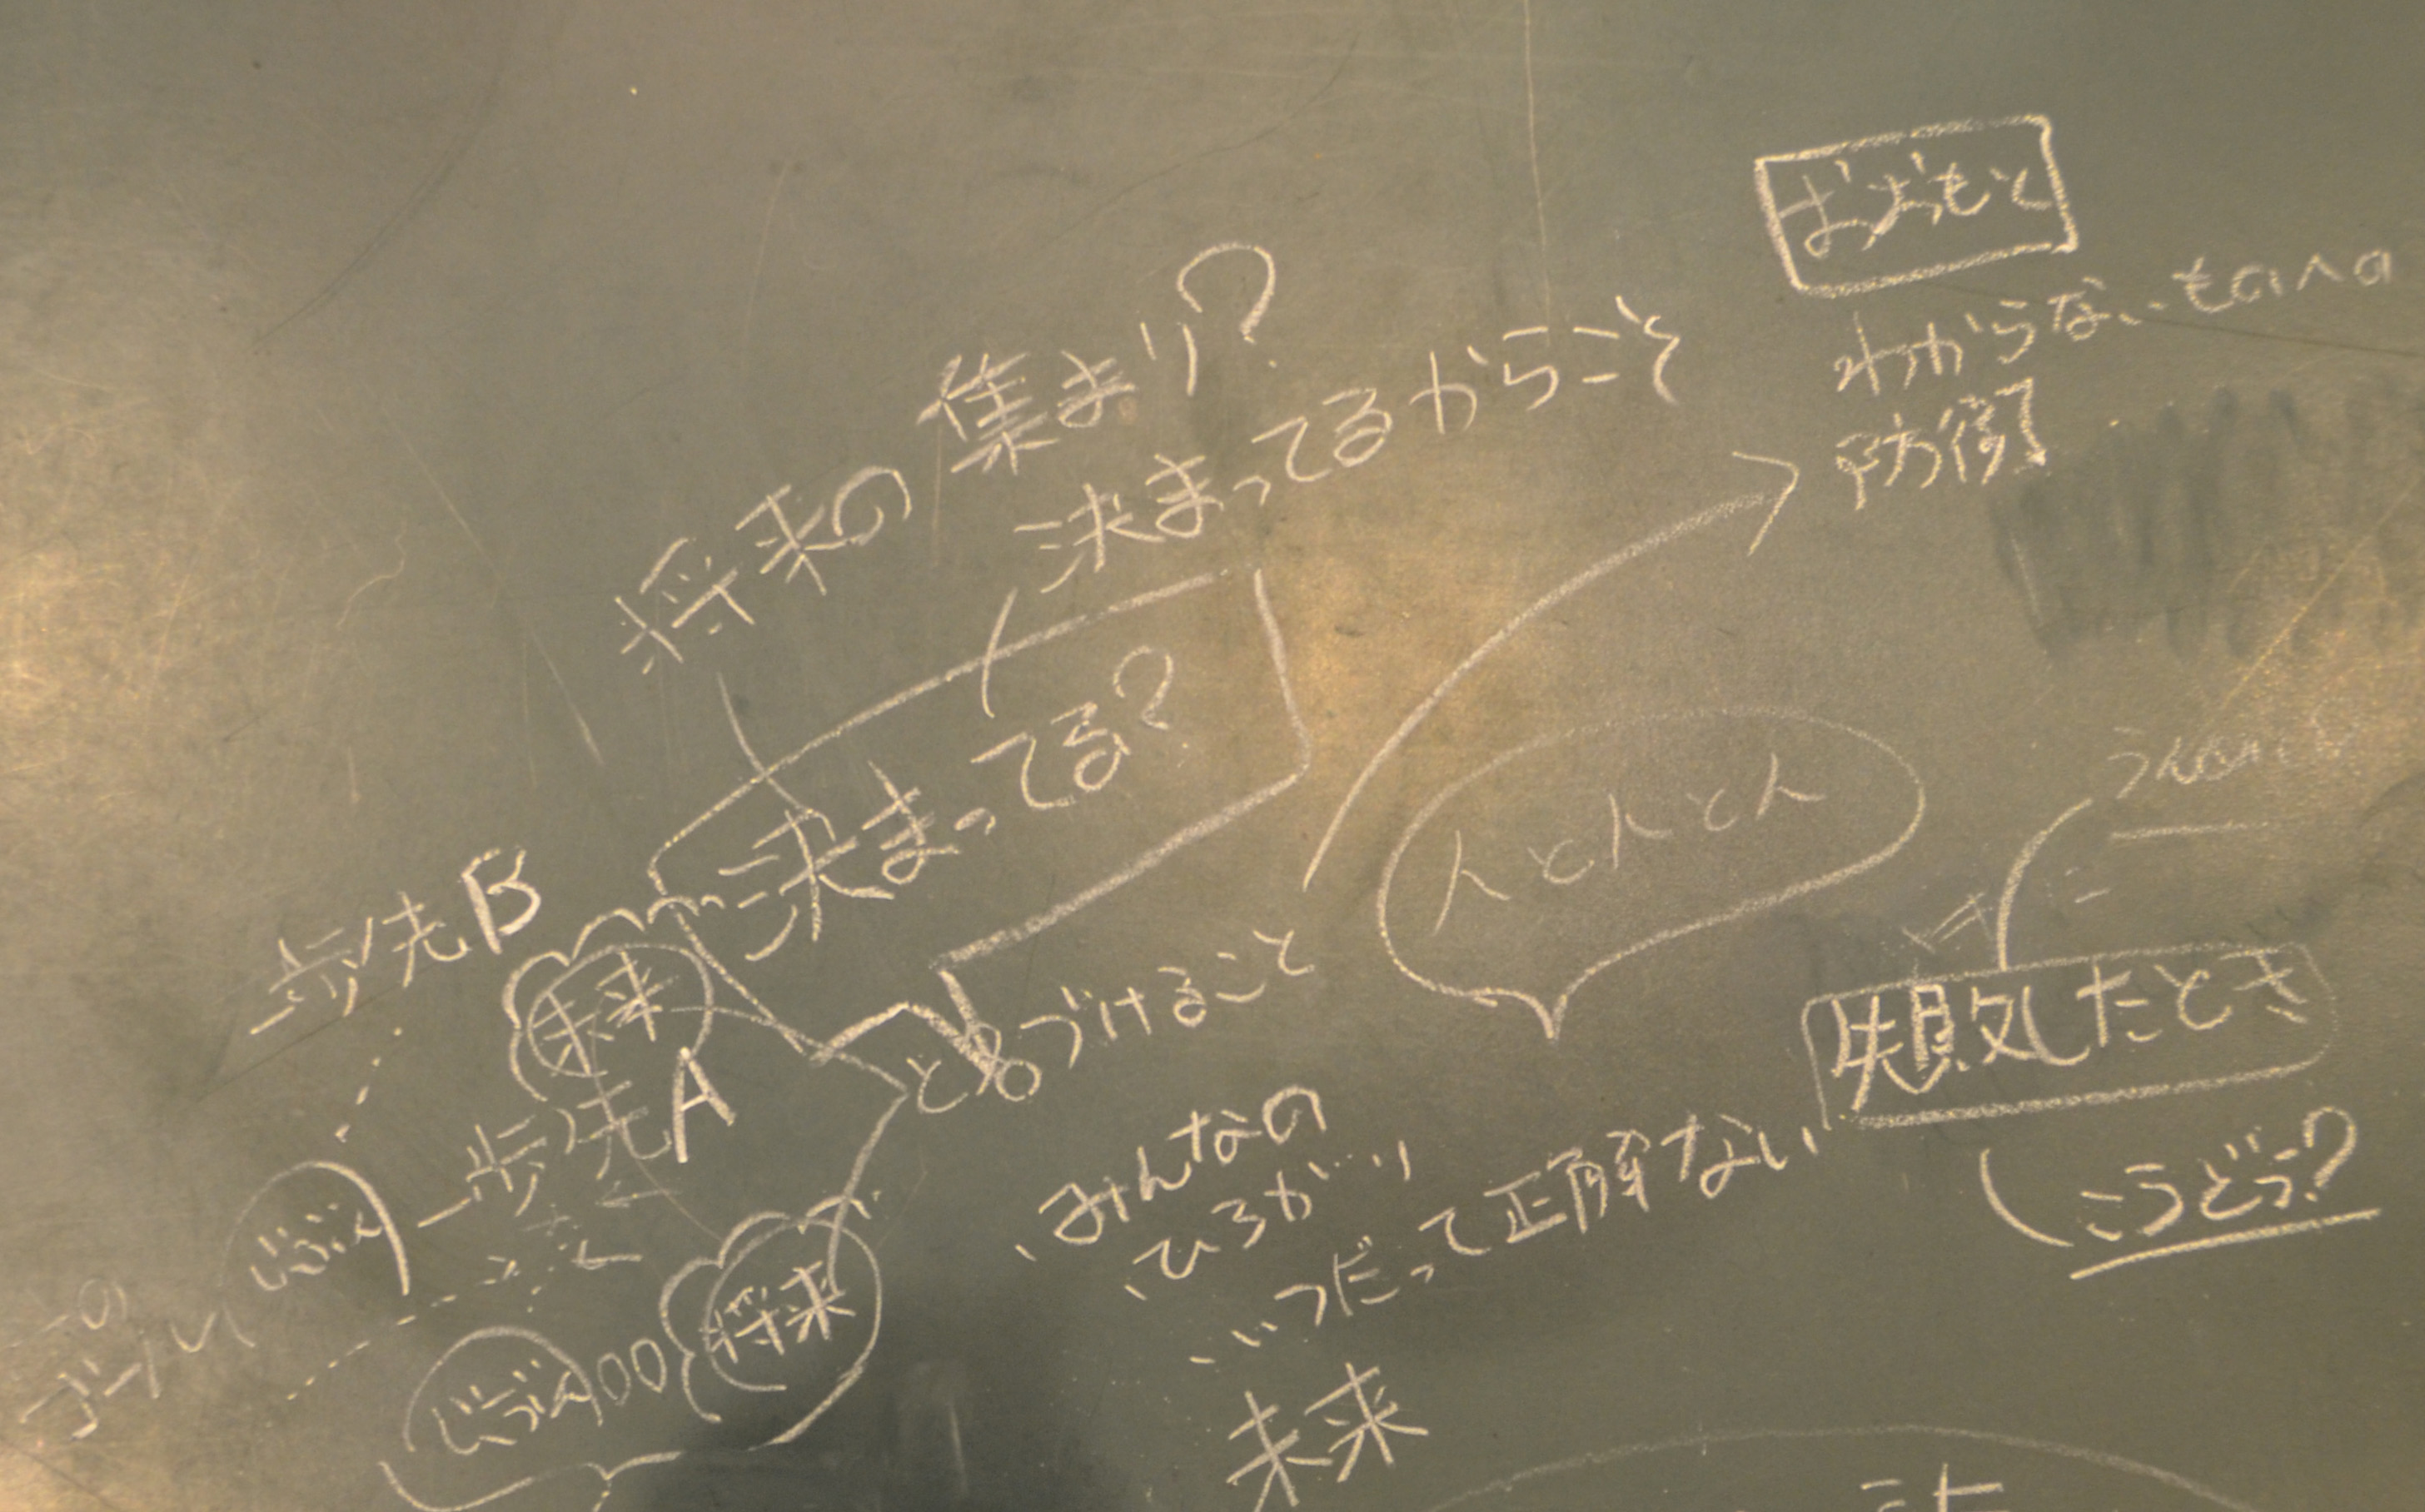 わからないものへの
防衛
将来の集まり?
決まってるからこそ
決まってる?
人と人と人
一歩先B
未来
と名づけること
失敗したとき
一歩先A
みんなの
ひろがり
いつだって正解ない
こうどう?
じぶん
ゴール
将来
じぶん
未来